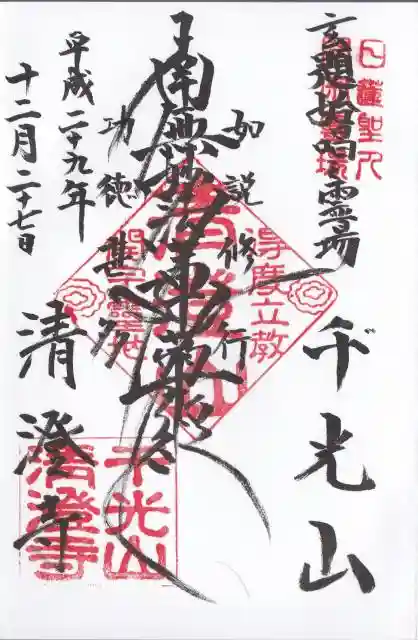 言題始唱之霊場
日蓮聖人
千光山
如説修行
南無妙法蓮華経
功徳甚多
平成二十九年
十二月二十七日
清澄寺
得度立教
開宗聖地
千光山
清澄寺